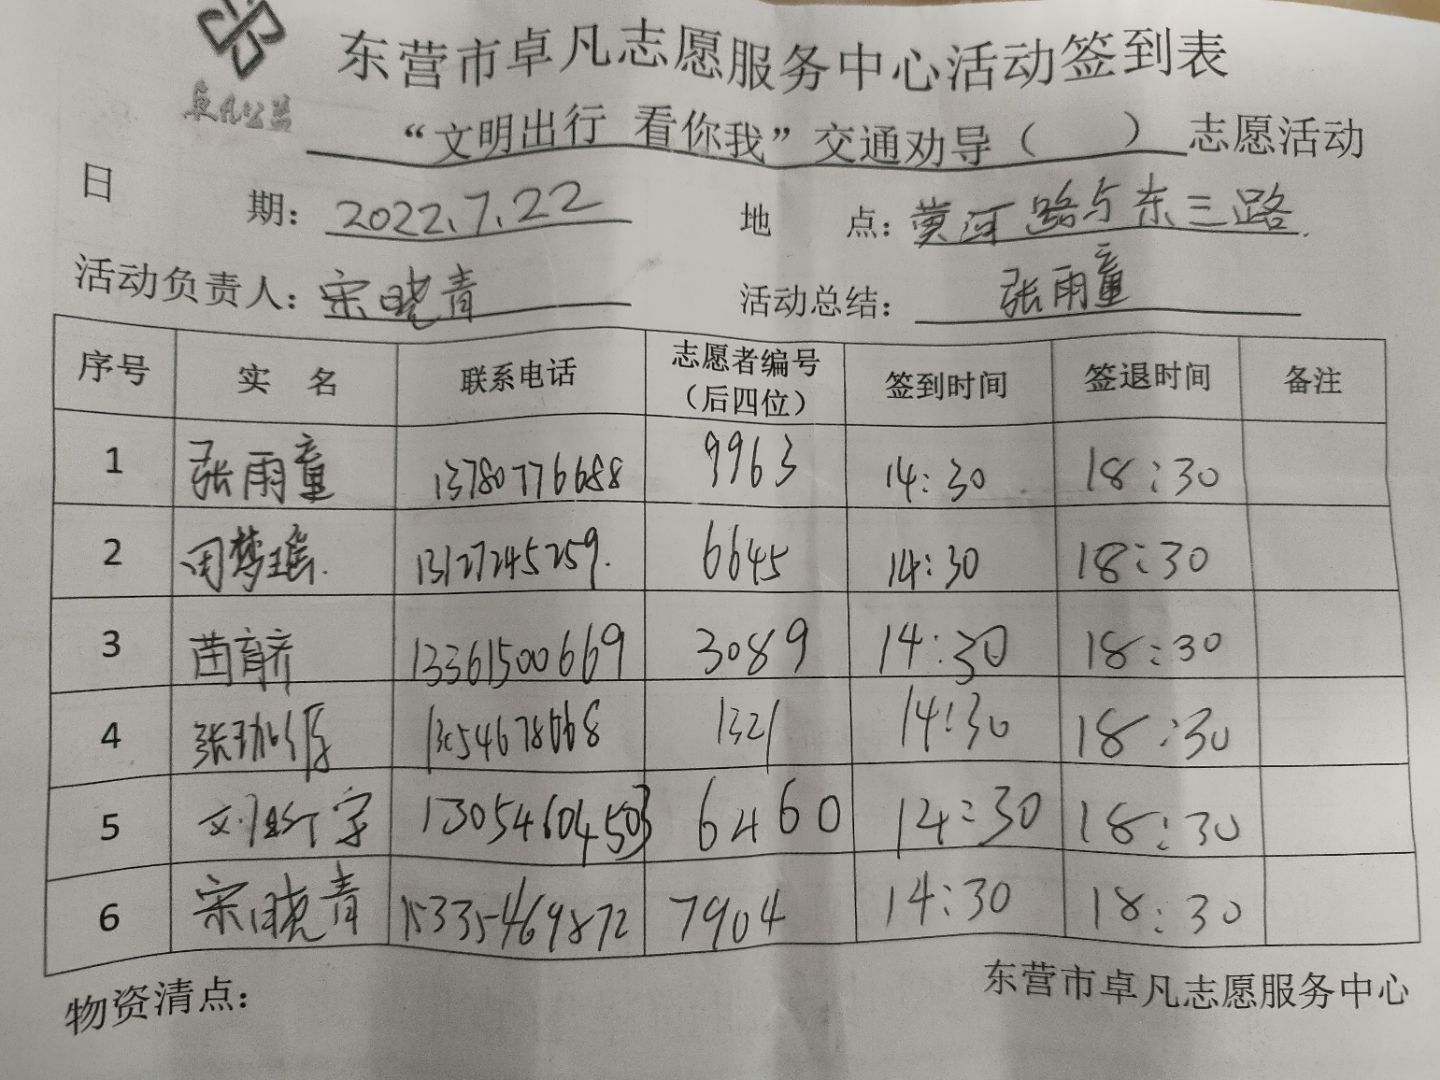 卓凡公益
东营市卓凡志愿服务中心活动签到表
“文明出行 看你我”交通劝导（ ）志愿活动
日 期：2022.7.22 地 点：黄河路与东三路
活动负责人：宋晓青 活动总结：张雨童
序号 实 名 联系电话 志愿者编号（后四位） 签到时间 签退时间 备注
1 张雨童 13780776688 9963 14:30 18:30
2 周梦瑶 13127245259 6645 14:30 18:30
3 苗育齐 13361500669 3089 14:30 18:30
4 张 1321 14:30 18:30
5 刘 13054604503 6460 14:30 18:30
6 宋晓青 15335469872 7904 14:30 18:30
物资清点： 东营市卓凡志愿服务中心